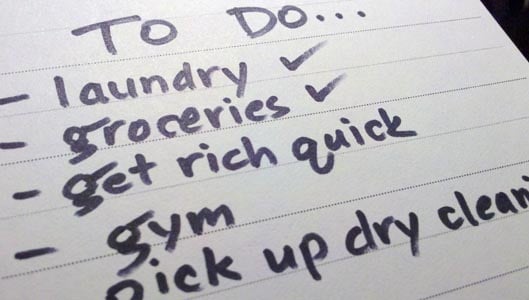 TO DO...
- laundry ✓
- groceries ✓
- get rich quick
- gym
pick up dry